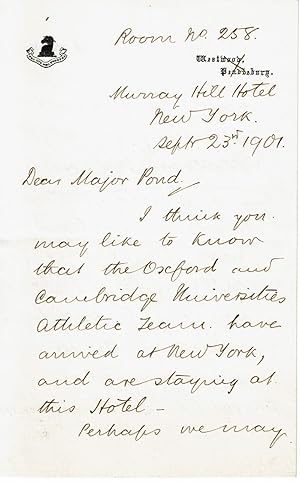 Room No. 258.
Westwood,
Pendlebury.
Murray Hill Hotel
New York.
Sept 23rd 1901.
Dear Major Pond,
I think you
may like to know
that the Oxford and
Cambridge Universities
Athletic Team. have
arrived at New York,
and are staying at
this Hotel –
Perhaps we may